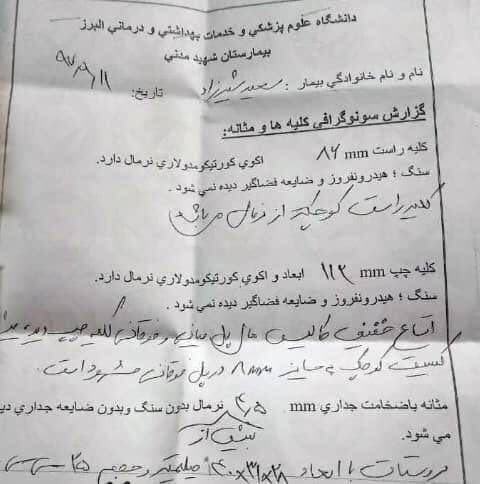 دانشگاه علوم پزشكي و خدمات بهداشتي و درماني البرز
بيمارستان شهيد مدني
نام و نام خانوادگي بيمار : سعید شیرزاد تاريخ: ۹۷/۰۹/۱۱
گزارش سونوگرافي كليه ها و مثانه:
كليه راست mm ۸۶ اكوي كورتيكومدولاري نرمال دارد.
سنگ ؛ هيدرونفروز و ضايعه فضاگير ديده نمي شود .
کلیه راست کوچکتر از نرمال می باشد
كليه چپ mm ۱۱۲ ابعاد و اكوي كورتيكومدولاري نرمال دارد.
سنگ ؛ هيدرونفروز و ضايعه فضاگير ديده نمي شود .
اتساع خفیف کالیس های پل میانی و فوقانی کلیه چپ دیده
کیست کوچک به سایز ۸mm در پل فوقانی مشهود است.
مثانه باضخامت جداري mm ۴٫۵ نرمال بدون سنگ وبدون ضايعه جداري
بیش از
مي شود.
پروستات با ابعاد ۴۰×۳۱×۲۸ میلیمتر و حجم ۲۵